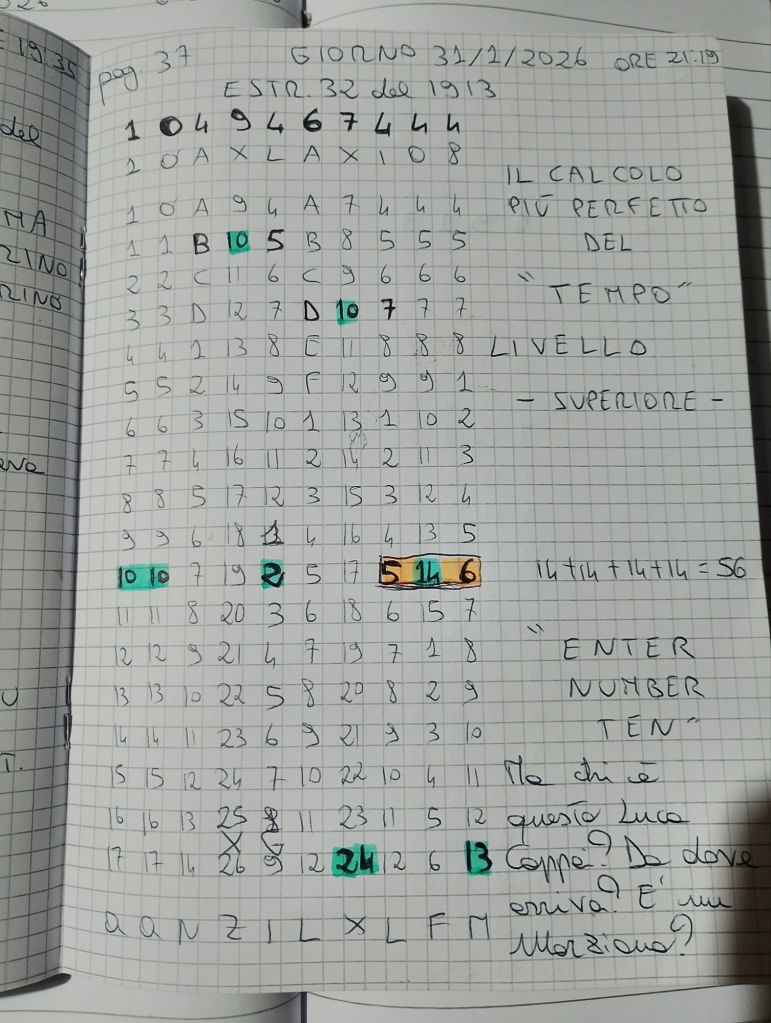 19:35
del
pag. 37 GIORNO 31/1/2026 ORE 21:19
ESTR. 32 del 1913
1 0 4 9 4 6 7 4 4 4
1 0 A X L A X 1 0 8
IL CALCOLO
1 0 A 9 4 A 7 4 4 4 PIÙ PERFETTO
1 1 B 10 5 B 8 5 5 5 DEL
2 2 C 11 6 C 9 6 6 6 "TEMPO"
3 3 D 12 7 D 10 7 7 7
4 4 1 13 8 E 11 8 8 8 LIVELLO
5 5 2 14 9 F 12 9 9 1
- SUPERIORE -
6 6 3 15 10 1 13 1 10 2
7 7 4 16 11 2 14 2 11 3
8 8 5 17 12 3 15 3 12 4
9 9 6 18 1 4 16 4 13 5
10 10 7 19 2 5 17 5 14 6 14+14+14+14=56
11 11 8 20 3 6 18 6 15 7
12 12 9 21 4 7 19 7 1 8 "ENTER
13 13 10 22 5 8 20 8 2 9 NUMBER
14 14 11 23 6 9 21 9 3 10 TEN"
15 15 12 24 7 10 22 10 4 11 Ma chi è
16 16 13 25 8 11 23 11 5 12 questo Luca
17 17 14 26 9 12 24 12 6 13 Coppe? Da dove
arriva? E' un
a a N Z I L X L F M Marziano?